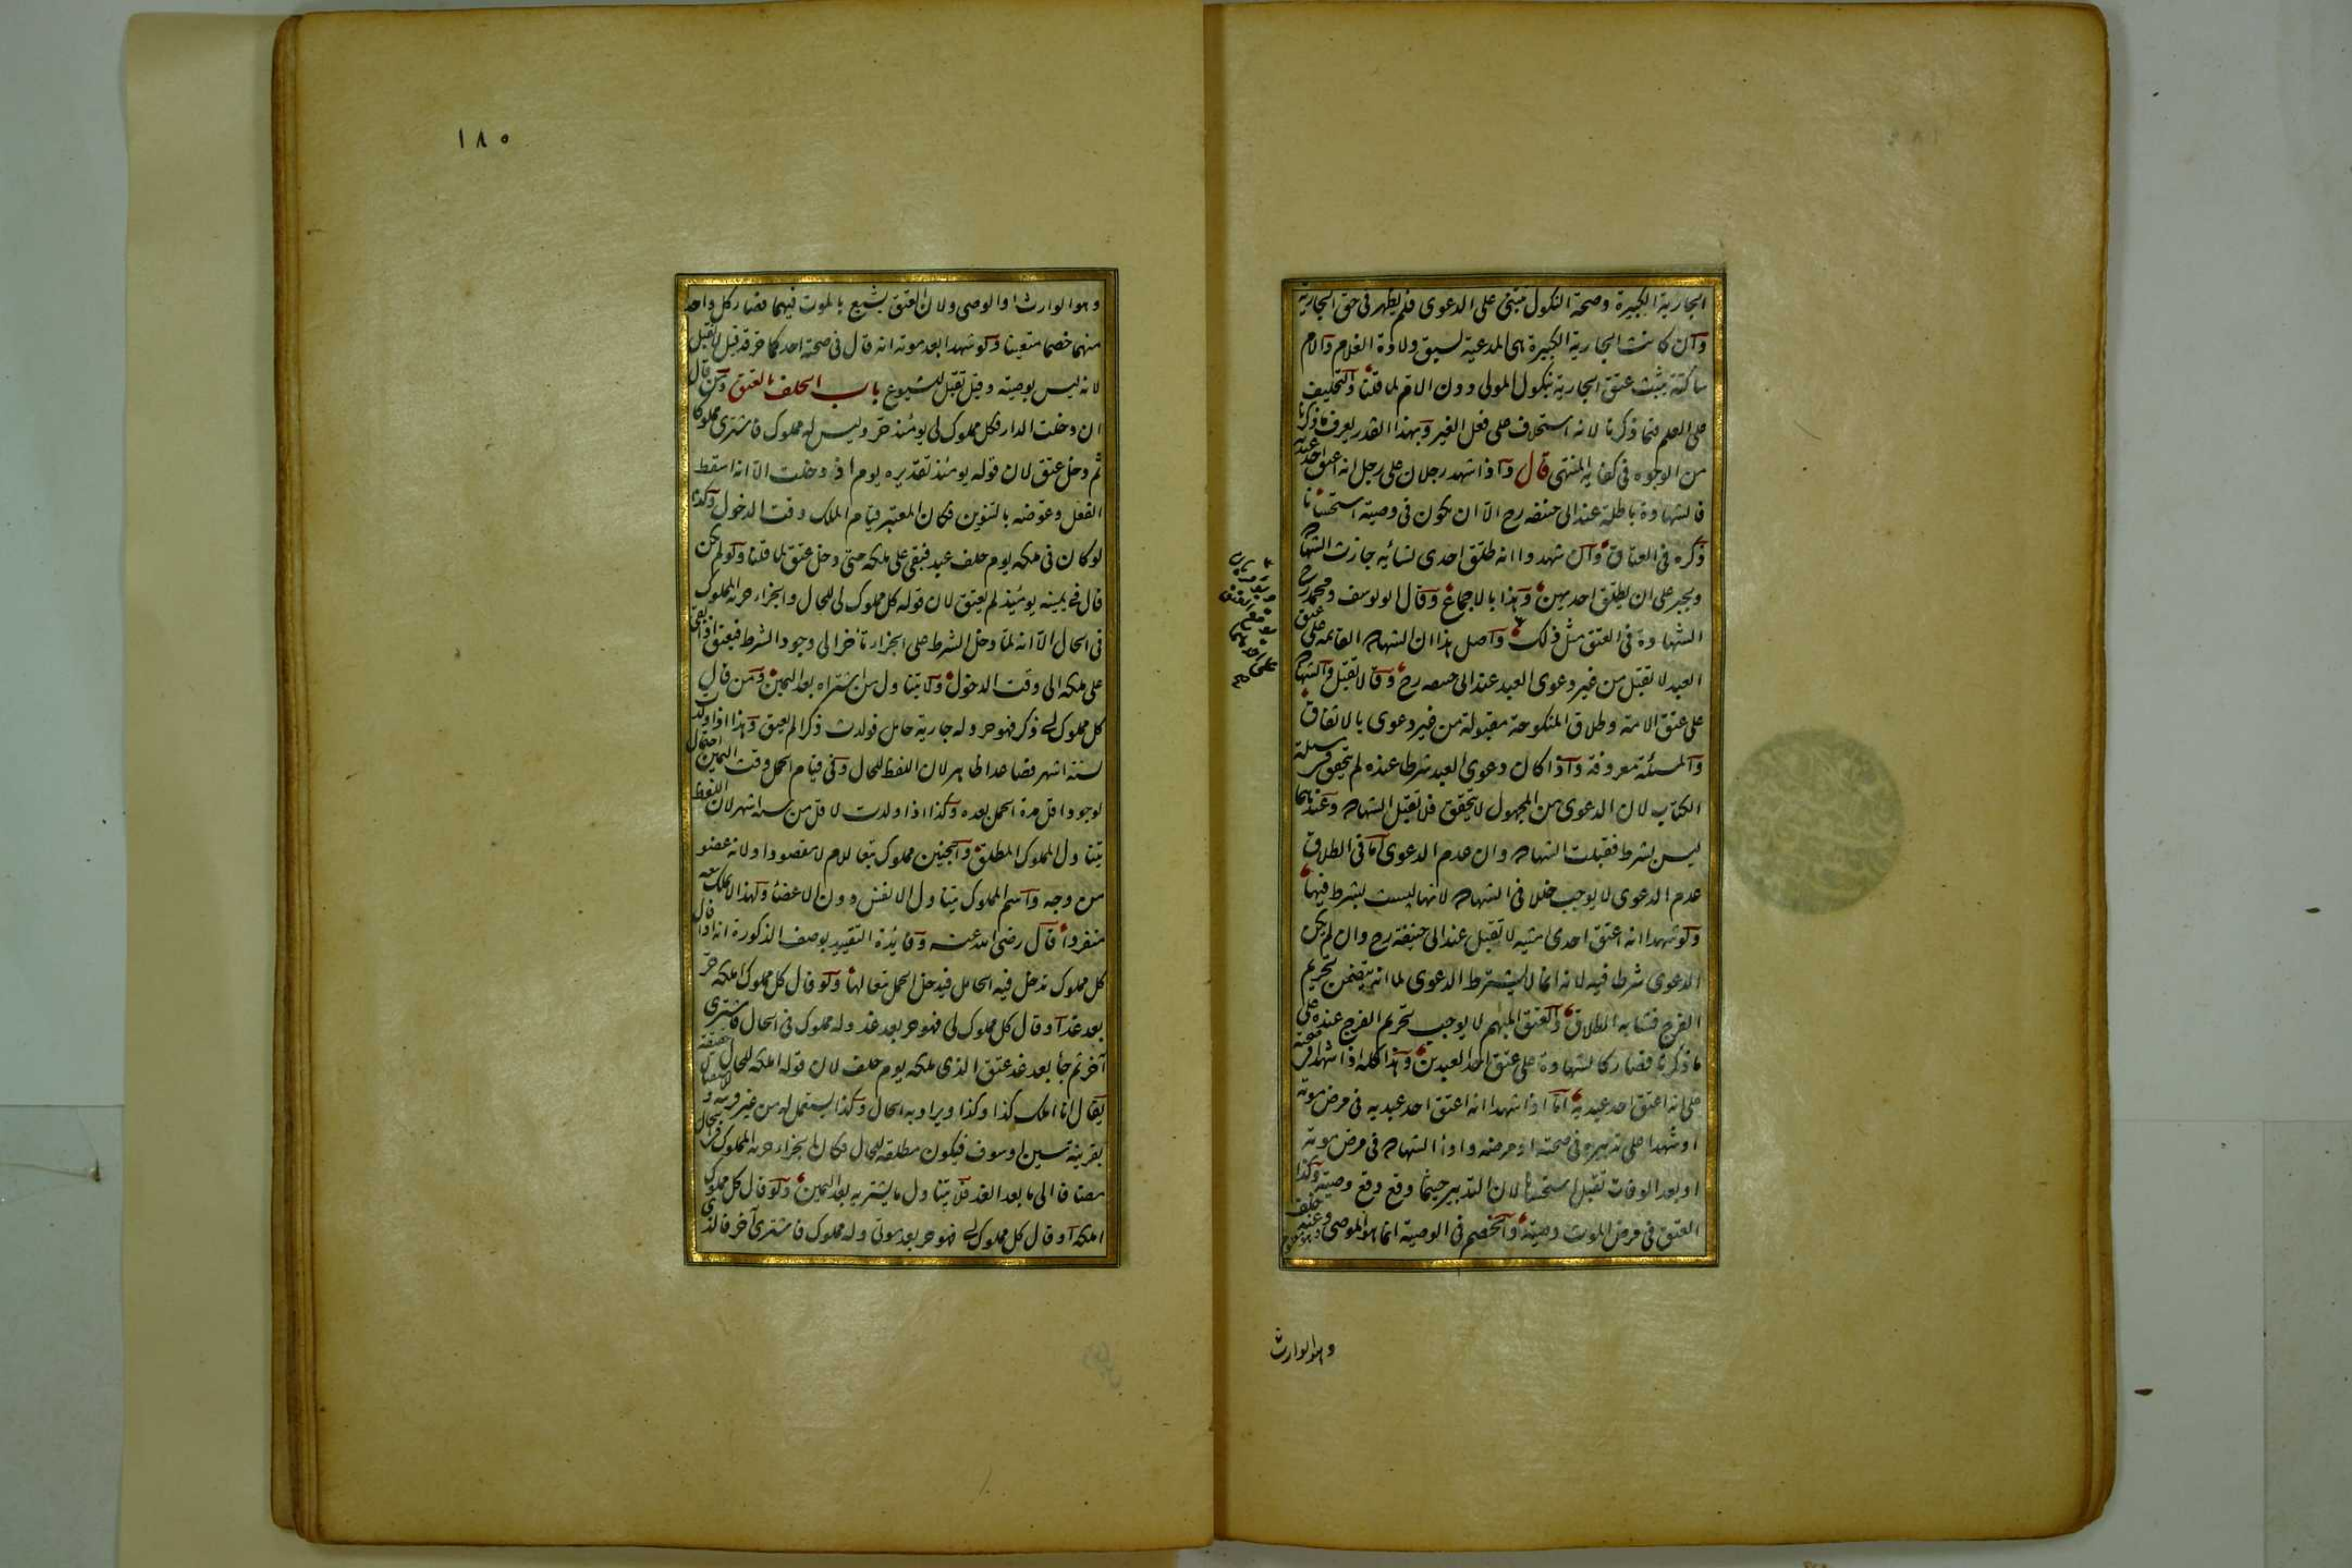 الجارية الكبيرة وصحة النكول تبتنى على الدعوى فلم يظهر فى حق الجارية
وان كانت الجارية الكبيرة هى المدعية لسبق ولادة الغلام والام
ساكتة يثبت عتق الجارية بنكول المولى دون الام لما قلنا والتحليف
على العلم فيما ذكرنا لانه استحلاف على فعل الغير وبهذا القدر يعرف ما ذكرنا
من الوجوه فى كفاية المنتهى قال واذا شهد رجلان على رجل انه اعتق احد عبديه
فالشهادة باطلة عند ابى حنيفه رح الا ان يكون فى وصية استحسانا
ذكره فى العتاق وان شهدوا انه طلق احدى نسائه جازت الشهاده
ويجبر على ان يطلق احديهن وهذا بالاجماع وقال ابو يوسف ومحمد رح
الشهادة فى العتق مثل ذلك واصل هذا ان الشهاده القائمه على عتق
العبد لا تقبل من غير دعوى العبد عند ابى حنيفه رح وقالا تقبل والشهاده
على عتق الامة وطلاق المنكوحة مقبولة من غير دعوى بالاتفاق
والمسئلة معروفة واذا كان دعوى العبد شرطا عنده لم يتحقق فى مسئلة
الكتاب لان الدعوى من المجهول لا يتحقق فلا تقبل الشهاده وعندهما
ليس بشرط فقبلت الشهاده وان عدم الدعوى اما فى الطلاق
عدم الدعوى لا يوجب خللا فى الشهاده لانها ليست بشرط فيها
ولو شهدا انه اعتق احدى امتيه لا تقبل عند ابى حنيفة رح وان لم يكن
الدعوى شرطا فيه لانه انما لا يشترط الدعوى لما انه يتضمن تحريم
الفرج فشابه الطلاق والعتق المبهم لا يوجب تحريم الفرج عنده على
ما ذكرنا فصار كالشهادة على عتق احد العبدين وهذا كله اذا شهدا فى صحته
على انه اعتق احد عبديه اما اذا شهدا انه اعتق احد عبديه فى مرض موته
او شهدا على تدبيره فى صحته او مرضه واداء الشهاده فى مرض موته
او بعد الوفات تقبل استحسانا لان التدبير حيثما وقع وقع وصية وكذا
العتق فى مرض الموت وصية والخصم فى الوصية انما هو الموصى وعنه خلف
وهو الوارث
١٨٥
وهو الوارث او الوصى ولان العتق يشيع بالموت فيهما فصار كل واحد
منهما خصما متعينا ولو شهدا بعد موته انه قال فى صحته احدكما حر قد قيل لا تقبل
لانه ليس بوصية وقيل تقبل للشيوع باب الحلف بالعتق ومن قال
ان دخلت الدار فكل مملوك لى يومئذ حر وليس له مملوك فاشترى مملوكا
ثم دخل عتق لان قوله يومئذ تقديره يوم اذ دخلت الا انه اسقط
الفعل وعوضه بالتنوين فكان المعتبر قيام الملك وقت الدخول وكذا
لو كان فى ملكه يوم حلف عبد فبقى على ملكه حتى دخل عتق لما قلنا ولو لم يكن
قال فى يمينه يومئذ لم يعتق لان قوله كل مملوك لى للحال والجزاء حرية المملوك
فى الحال الا انه لما دخل الشرط على الجزاء تأخر الى وجود الشرط فيعتق اذا بقى
على ملكه الى وقت الدخول ولا يتناول من اشتراه بعد اليمين ومن قال
كل مملوك لى ذكر فهو حر وله جارية حامل فولدت ذكرا لم يعتق وهذا اذا ولدت
لستة اشهر فصاعدا ظاهر لان اللفظ للحال وفى قيام الحمل وقت اليمين احتمال
لوجود اقل مدة الحمل بعده وكذا اذا ولدت لاقل من ستة اشهر لان اللفظ
يتناول المملوك المطلق والجنين مملوك تبعا للام لا مقصودا ولانه عضو
من وجه واسم المملوك يتناول الانفس دون الاعضاء ولهذا لا يملك بيعه
منفردا قال رضى الله عنه وفايدة التقييد بوصف الذكورة انه اذا قال
كل مملوك تدخل فيه الحامل فيدخل الحمل تبعا لها ولو قال كل مملوك املكه حر
بعد غد او قال كل مملوك لى فهو حر بعد غد وله مملوك فى الحال فاشترى
آخر ثم جاء بعد غد عتق الذى ملكه يوم حلف لان قوله املكه للحال حقيقة
يقال انا املك كذا وكذا ويراد به الحال وكذا يستعمل له من غير قرينه وللاستقبال
بقرينة سين او سوف فيكون مطلقه للحال فكان الجزاء حرية المملوك فى الحال
مضافا الى ما بعد الغد فلا يتناول ما يشتريه بعد اليمين ولو قال كل مملوك
املكه او قال كل مملوك لى فهو حر بعد موتى وله مملوك فاشترى آخر فالذى